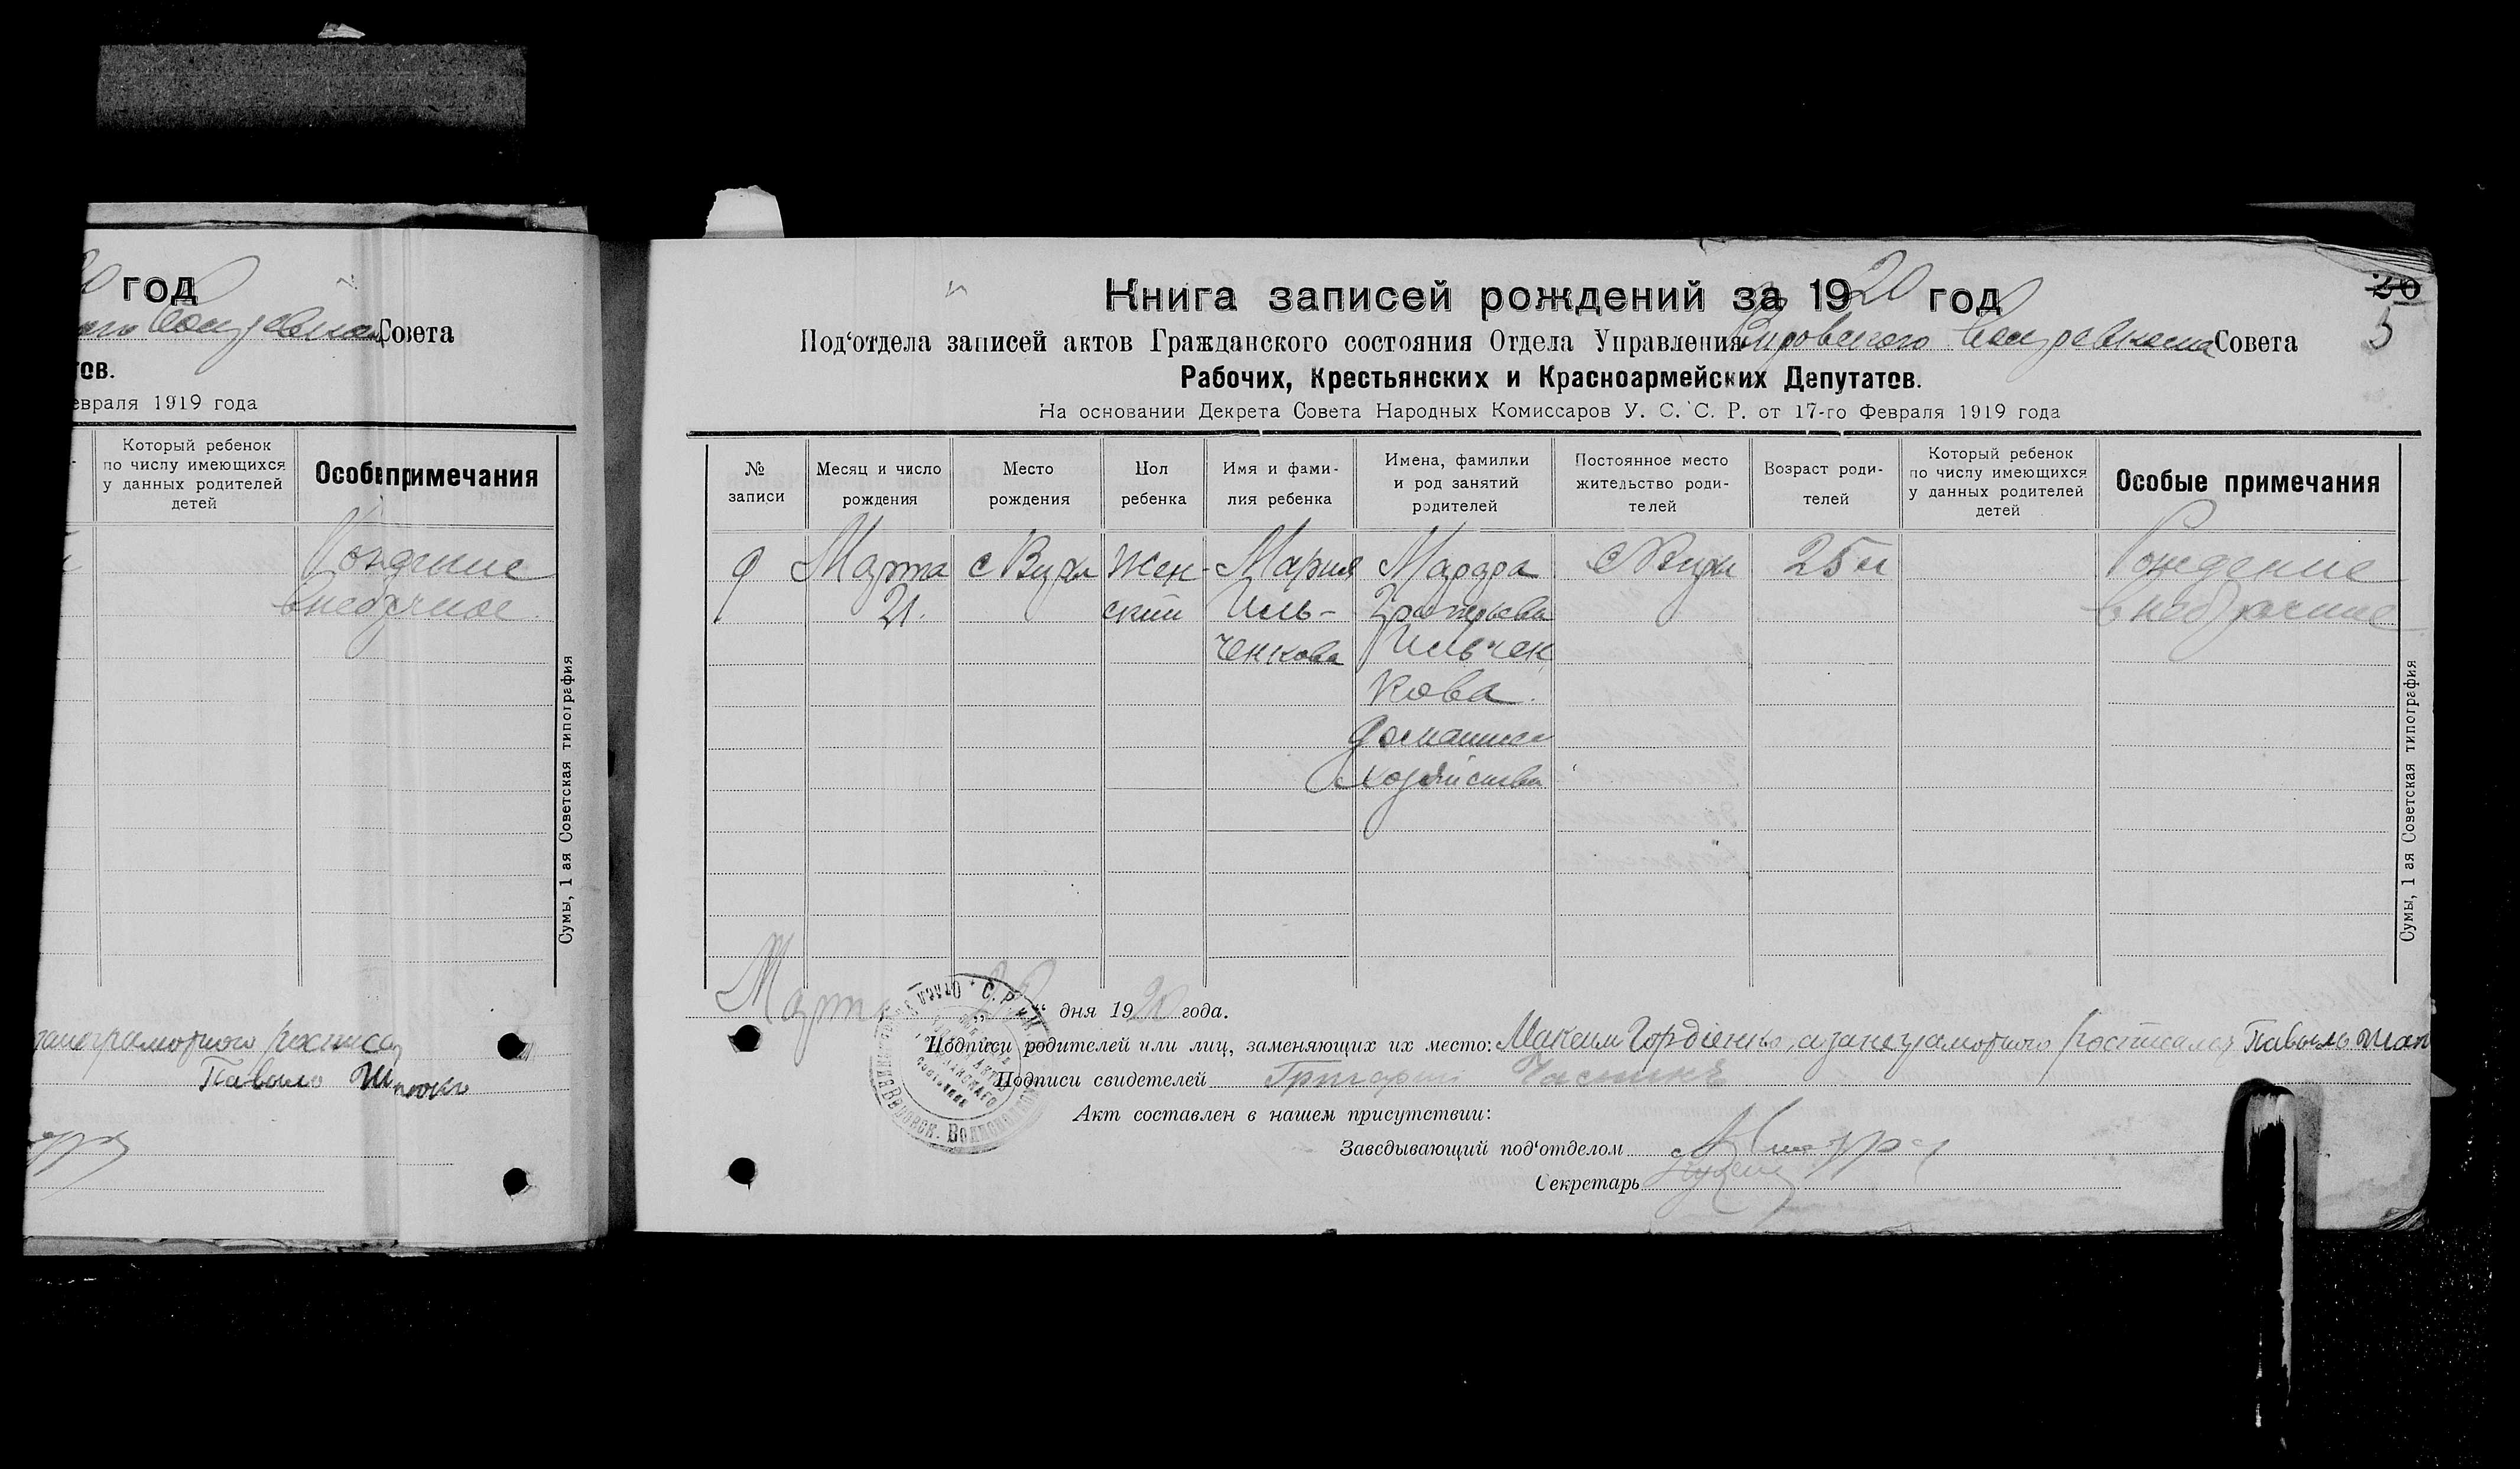 год
Совета
тов.
евраля 1919 года
Который ребенок
по числу имеющихся
у данных родителей
детей
Особ примечания
Рождение
внебрачное
Сумы, 1 ая Советская типография
Павыло
Книга записей рождений за 1920 год
Под‘отдела записей актов Гражданского состояния Отдела Управления Вировского Совета
Рабочих, Крестьянских и Красноармейских Депутатов.
На основании Декрета Совета Народных Комиссаров У. С. С. Р. от 17-го Февраля 1919 года
20
5
№
записи
Месяц и число
рождения
Место
рождения
Пол
ребенка
Имя и фами-
лия ребенка
Имена, фамилии
и род занятий
родителей
Постоянное место
жительство роди-
телей
Возраст роди-
телей
Который ребенок
по числу имеющихся
у данных родителей
детей
Особые примечания
9
Марта
21.
с Виры
Жен-
ский
Мария
Иль-
ченкова
Марфа
Ильчен
кова.
домашнее
хозяйство
с Виры
25 л
Рождение
внебрачное
Сумы, 1 ая Советская типография
Марта “ дня 1920 года.
Подписи родителей или лиц, заменяющих их место: Максим Гордіенко, а за неграмотного росписался Павыло Шап
Подписи свидетелей Григорий
Акт составлен в нашем присутствии:
Заведывающий под‘отделом
Секретарь